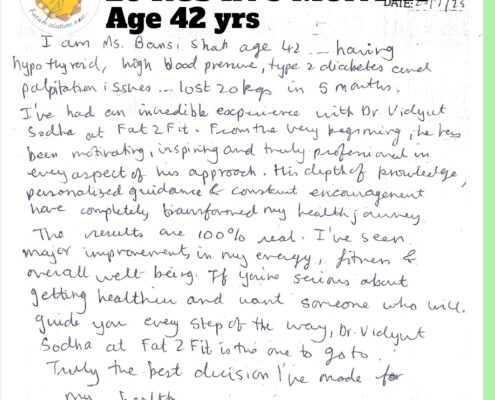 Age 42 yrs
DATE:
I am Ms. Bansi Shah age 42 -- having
hypothyroid, high blood pressure, type 2 diabetes and
palpitation issues --- lost 20 kgs in 5 months.
I've had an incredible experience with Dr. Vidyut
Sodha at Fat 2 Fit. From the very beginning, he has
been motivating, inspiring and truly professional in
every aspect of his approach. His depth of knowledge,
personalized guidance & constant encouragement
have completely transformed my health journey.
The results are 100% real. I've seen
major improvements in my energy, fitness &
overall well being. If you're serious about
getting healthier and want someone who will
guide you every step of the way, Dr. Vidyut
Sodha at Fat 2 Fit is the one to go to.
Truly the best decision I've made for
my health